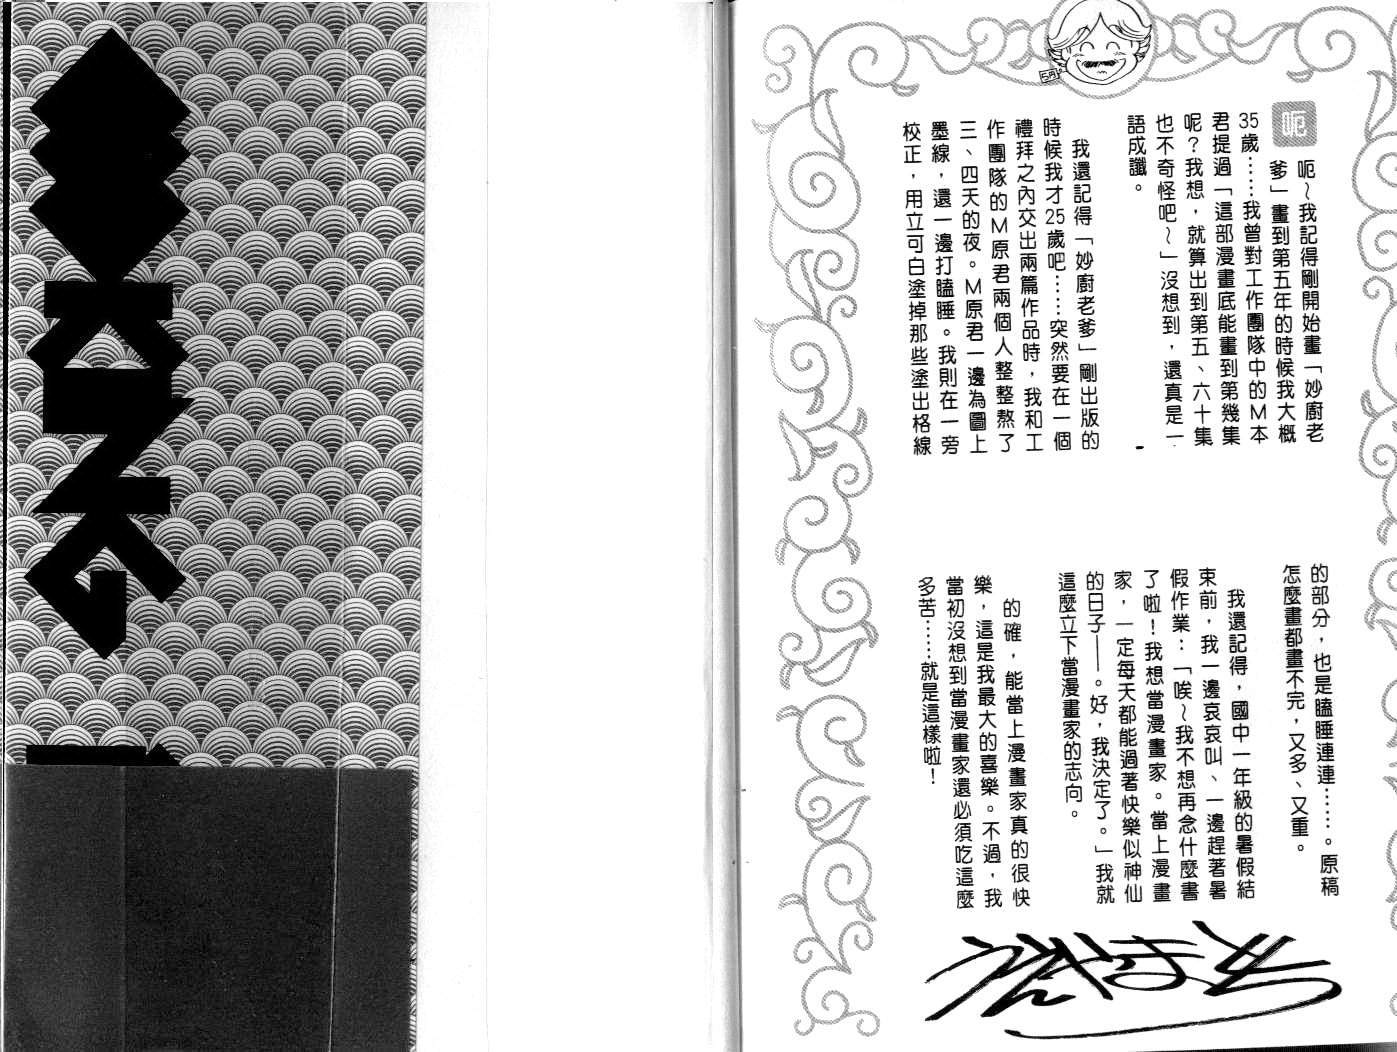 呃
呃～我記得剛開始畫「妙廚老
爹」畫到第五年的時候我大概
35歲……我曾對工作團隊中的M本
君提過「這部漫畫底能畫到第幾集
呢？我想，就算出到第五、六十集
也不奇怪吧～」沒想到，還真是一
語成讖。
我還記得「妙廚老爹」剛出版的
時候我才25歲吧……突然要在一個
禮拜之內交出兩篇作品時，我和工
作團隊的M原君兩個人整整熬了
三、四天的夜。M原君一邊為圖上
墨線，還一邊打瞌睡。我則在一旁
校正，用立可白塗掉那些塗出格線
的部分，也是瞌睡連連……。原稿
怎麼畫都畫不完，又多、又重。
我還記得，國中一年級的暑假結
束前，我一邊哀哀叫、一邊趕著暑
假作業：「唉～我不想再念什麼書
了啦！我想當漫畫家。當上漫畫
家，一定每天都能過著快樂似神仙
的日子——。好，我決定了。」我就
這麼立下當漫畫家的志向。
的確，能當上漫畫家真的很快
樂，這是我最大的喜樂。不過，我
當初沒想到當漫畫家還必須吃這麼
多苦……就是這樣啦！